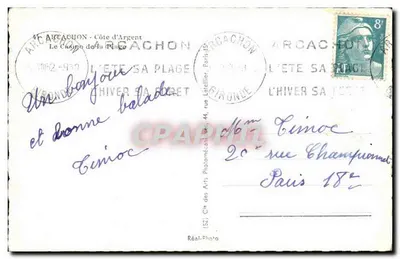 ARCACHON - Côte d'Argent
Le Casino de la Plage
ARCACHON
GIRONDE
ARCACHON
L'ÉTÉ SA PLAGE
L'HIVER SA FORÊT
ARCACHON
GIRONDE
ARCACHON
L'ÉTÉ SA PLAGE
L'HIVER SA FORÊT
8F
Un bonjour
et bonne balade
Timoc
Mm Timoc
20 rue Championnet
Paris 18e
Cie des Arts Photomécaniques, 44, rue Letellier, Paris
Réal-Photo
CPRPHOTO